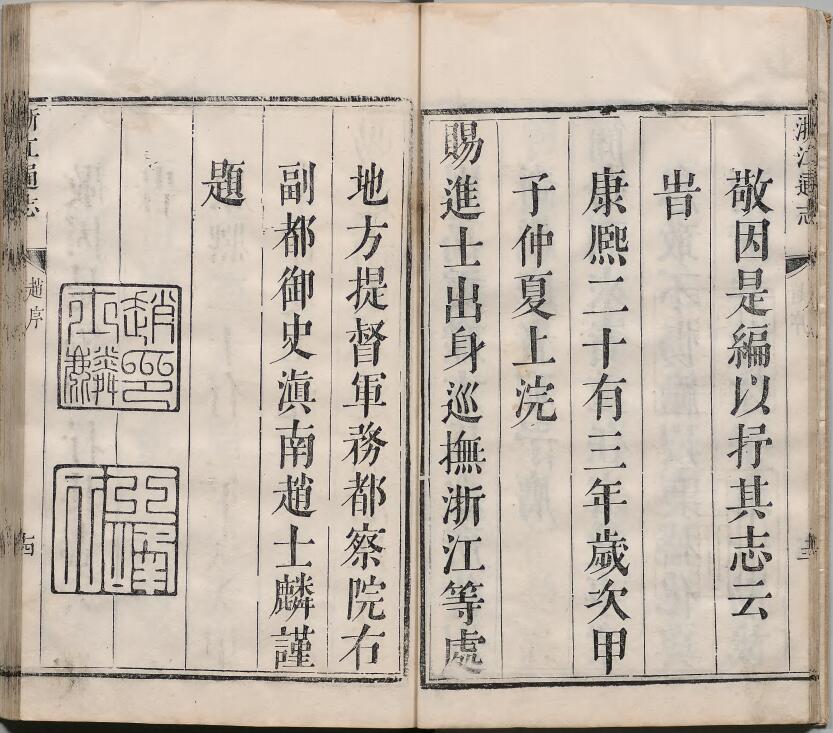 浙江通志
敬因是編以抒其志云
旹
康熙二十有三年歲次甲
子仲夏上浣
賜進士出身巡撫浙江等處
地方提督軍務都察院右
副都御史滇南趙士麟謹
題
趙印
士麟
浙江通志
趙序
十四